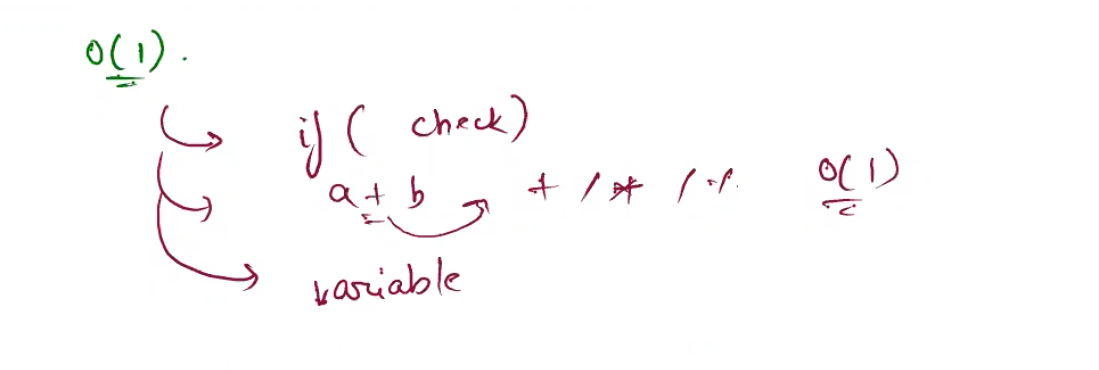 O(1).
if ( check)
a + b + / * / % O(1)
variable